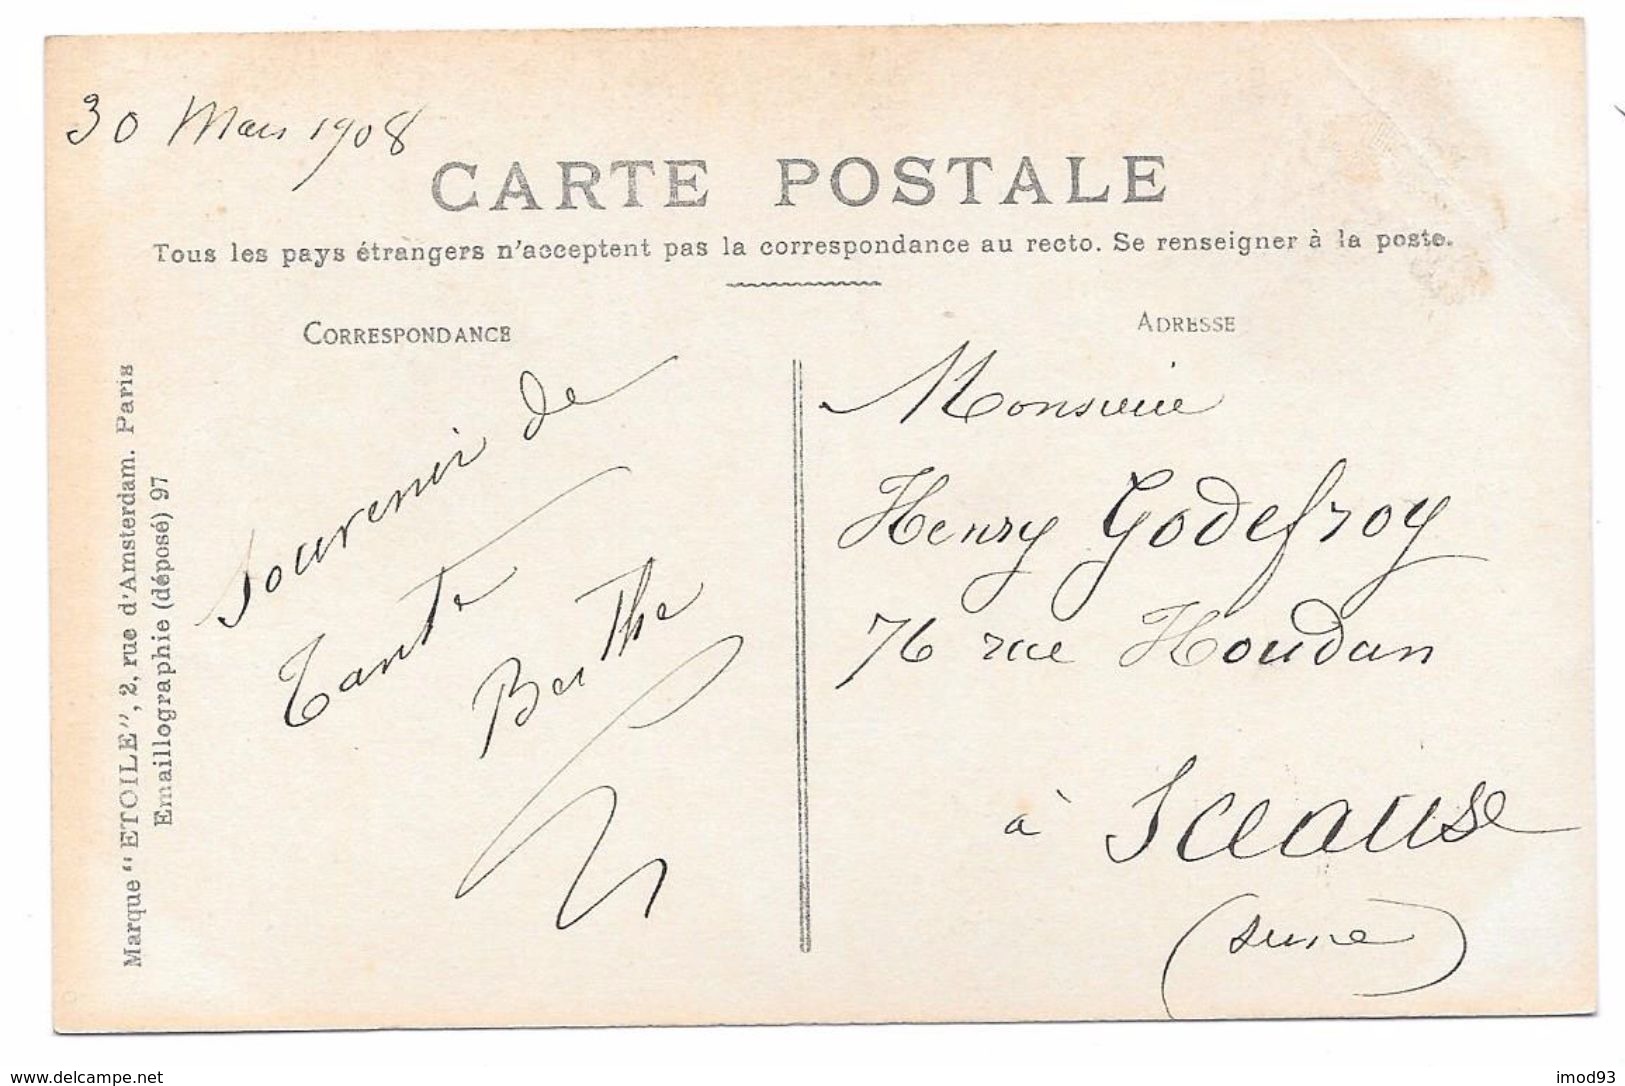 30 Mars 1908
CARTE POSTALE
Tous les pays étrangers n'acceptent pas la correspondance au recto. Se renseigner à la poste.
CORRESPONDANCE
Souvenir de
Tante
Berthe
ADRESSE
Monsieur
Henry Godefroy
76 rue Houdan
à Sceaux
(Seine)
Marque "ETOILE", 2, rue d'Amsterdam. Paris
Emaillographie (déposé) 97
www.delcampe.net
imod93